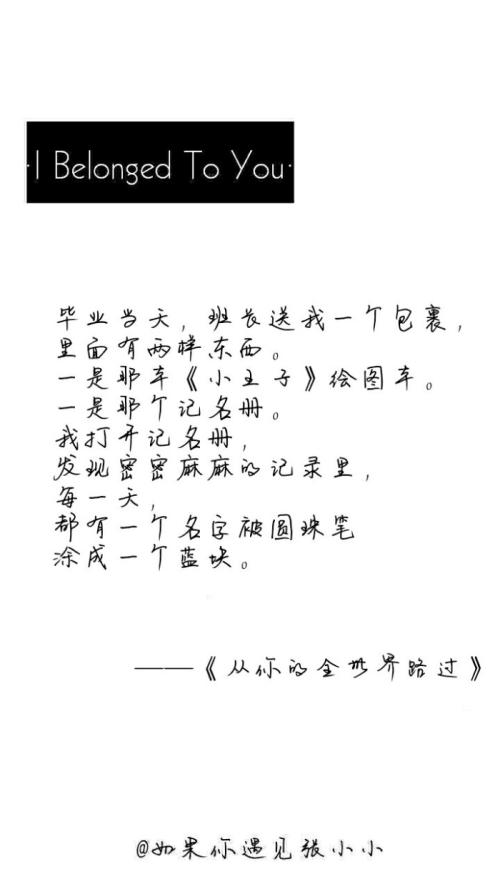 ·I Belonged To You·
毕业当天，班长送我一个包裹，
里面有两样东西。
一是那本《小王子》绘图本。
一是那个记名册。
我打开记名册，
发现密密麻麻的记录里，
每一天，
都有一个名字被圆珠笔
涂成一个蓝块。
——《从你的全世界路过》
@如果你遇见张小小